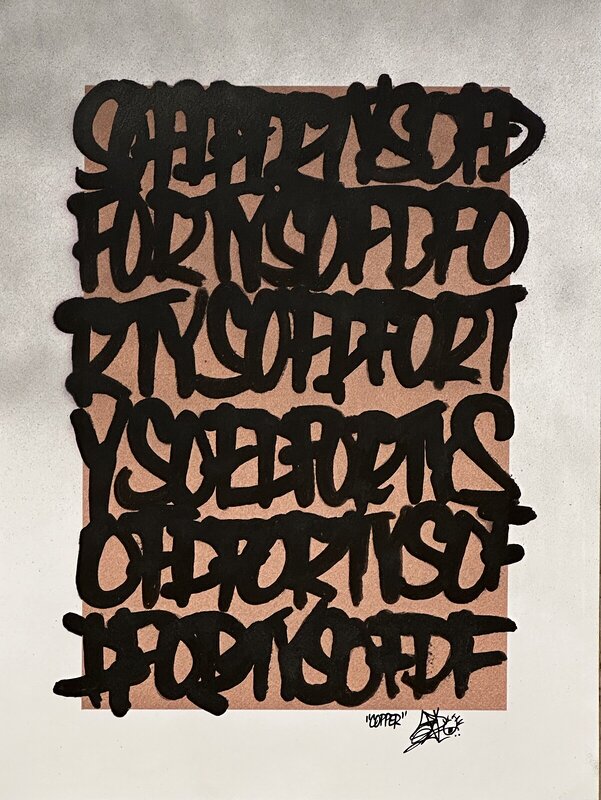 SOFDFORTYSOFD
FORTYSOFDFO
RTYSOFDFORT
YSOFDFORTYS
OFDFORTYSOF
DFORTYSOFDF
"COPPER"